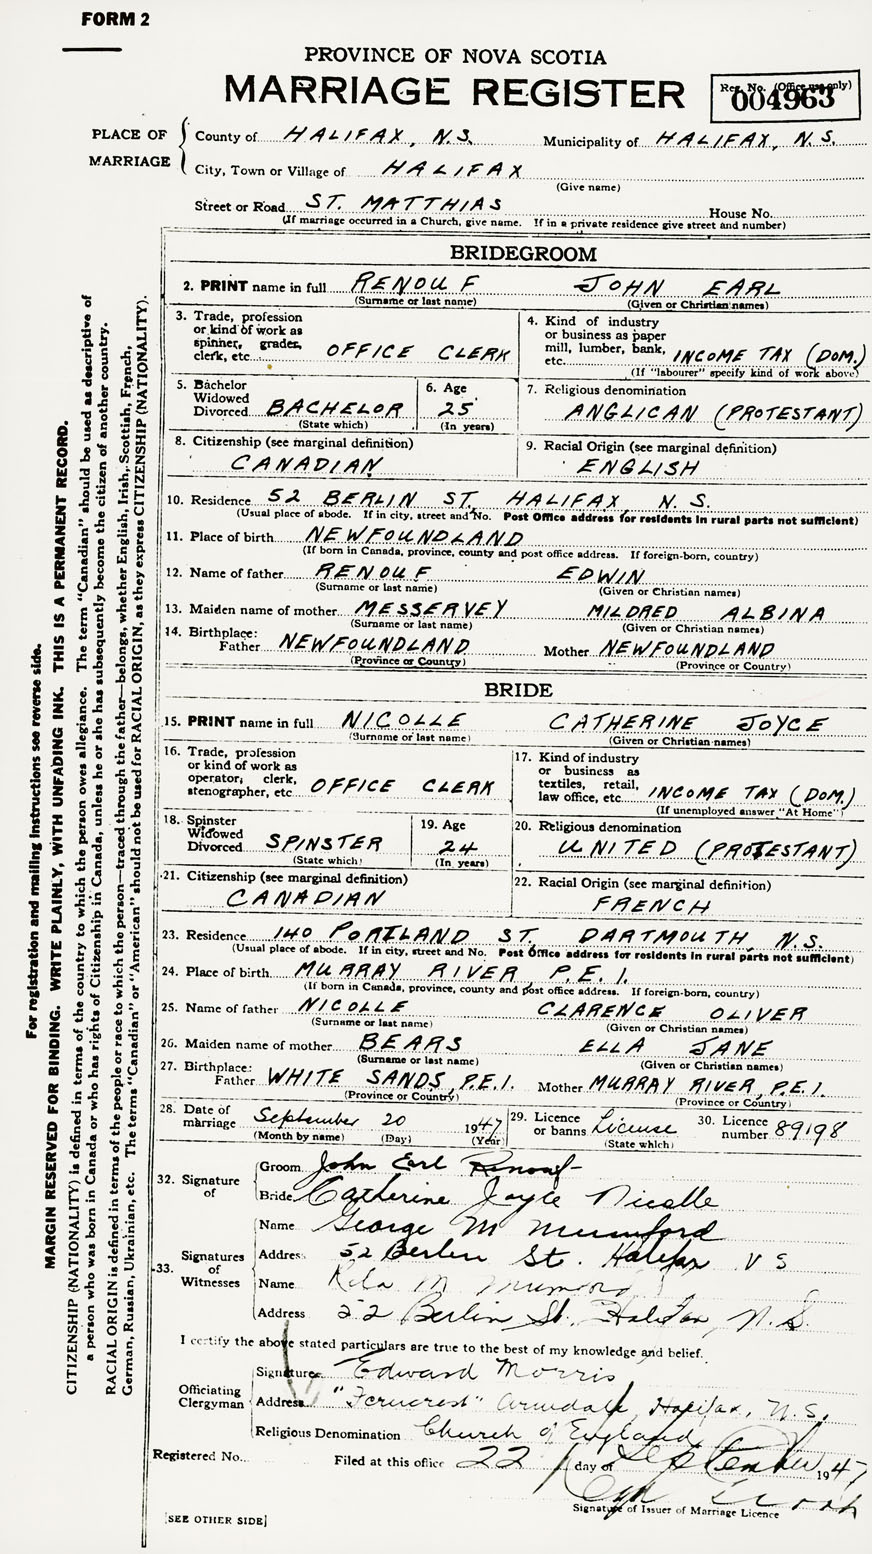 FORM 2
PROVINCE OF NOVA SCOTIA
MARRIAGE REGISTER
Reg. No. (Office use only)
004963
PLACE OF MARRIAGE
County of HALIFAX, N.S. Municipality of HALIFAX, N.S.
City, Town or Village of HALIFAX
(Give name)
Street or Road ST. MATTHIAS House No.
(If marriage occurred in a Church, give name. If in a private residence give street and number)
BRIDEGROOM
2. PRINT name in full RENOUF JOHN EARL
(Surname or last name) (Given or Christian names)
3. Trade, profession or kind of work as spinner, grader, clerk, etc. OFFICE CLERK
4. Kind of industry or business as paper mill, lumber, bank, etc. INCOME TAX (DOM.)
(If "labourer" specify kind of work above)
5. Bachelor Widowed Divorced BACHELOR
(State which)
6. Age 25
(In years)
7. Religious denomination
ANGLICAN (PROTESTANT)
8. Citizenship (see marginal definition)
CANADIAN
9. Racial Origin (see marginal definition)
ENGLISH
10. Residence 52 BERLIN ST. HALIFAX N.S.
(Usual place of abode. If in city, street and No. Post Office address for residents in rural parts not sufficient)
11. Place of birth NEWFOUNDLAND
(If born in Canada, province, county and post office address. If foreign-born, country)
12. Name of father RENOUF EDWIN
(Surname or last name) (Given or Christian names)
13. Maiden name of mother MESSERVEY MILDRED ALBINA
(Surname or last name) (Given or Christian names)
14. Birthplace:
Father NEWFOUNDLAND Mother NEWFOUNDLAND
(Province or Country) (Province or Country)
BRIDE
15. PRINT name in full NICOLLE CATHERINE JOYCE
(Surname or last name) (Given or Christian names)
16. Trade, profession or kind of work as operator, clerk, stenographer, etc OFFICE CLERK
17. Kind of industry or business as textiles, retail, law office, etc. INCOME TAX (DOM.)
(If unemployed answer "At Home")
18. Spinster Widowed Divorced SPINSTER
(State which)
19. Age 24
(In years)
20. Religious denomination
UNITED (PROTESTANT)
21. Citizenship (see marginal definition)
CANADIAN
22. Racial Origin (see marginal definition)
FRENCH
23. Residence 140 PORTLAND ST. DARTMOUTH, N.S.
(Usual place of abode. If in city, street and No. Post Office address for residents in rural parts not sufficient)
24. Place of birth MURRAY RIVER P.E.I.
(If born in Canada, province, county and post office address. If foreign-born, country)
25. Name of father NICOLLE CLARENCE OLIVER
(Surname or last name) (Given or Christian names)
26. Maiden name of mother BEARS ELLA JANE
(Surname or last name) (Given or Christian names)
27. Birthplace:
Father WHITE SANDS, P.E.I. Mother MURRAY RIVER, P.E.I.
(Province or Country) (Province or Country)
28. Date of marriage September 20 1947
(Month by name) (Day) (Year)
29. Licence or banns License
(State which)
30. Licence number 89198
32. Signature of
Groom John Earl Renouf
Bride Catherine Joyce Nicolle
33. Signatures of Witnesses
Name George M Mumford
Address 52 Berlin St. Halifax N S
Name M Mumford
Address 52 Berlin St. Halifax, N.S.
I certify the above stated particulars are true to the best of my knowledge and belief.
Officiating Clergyman
Signature Edward Morris
Address "Ferncrest" Armdale, Halifax, N.S.
Religious Denomination Church of England
Registered No. Filed at this office 22 day of September 1947
Signature of Issuer of Marriage Licence
[SEE OTHER SIDE]
For registration and mailing instructions see reverse side.
MARGIN RESERVED FOR BINDING. WRITE PLAINLY, WITH UNFADING INK. THIS IS A PERMANENT RECORD.
CITIZENSHIP (NATIONALITY) is defined in terms of the country to which the person owes allegiance. The term "Canadian" should be used as descriptive of
a person who was born in Canada or who has rights of Citizenship in Canada, unless he or she has subsequently become the citizen of another country.
RACIAL ORIGIN is defined in terms of the people or race to which the person—traced through the father—belongs, whether English, Irish, Scottish, French,
German, Russian, Ukrainian, etc. The terms "Canadian" or "American" should not be used for RACIAL ORIGIN, as they express CITIZENSHIP (NATIONALITY).